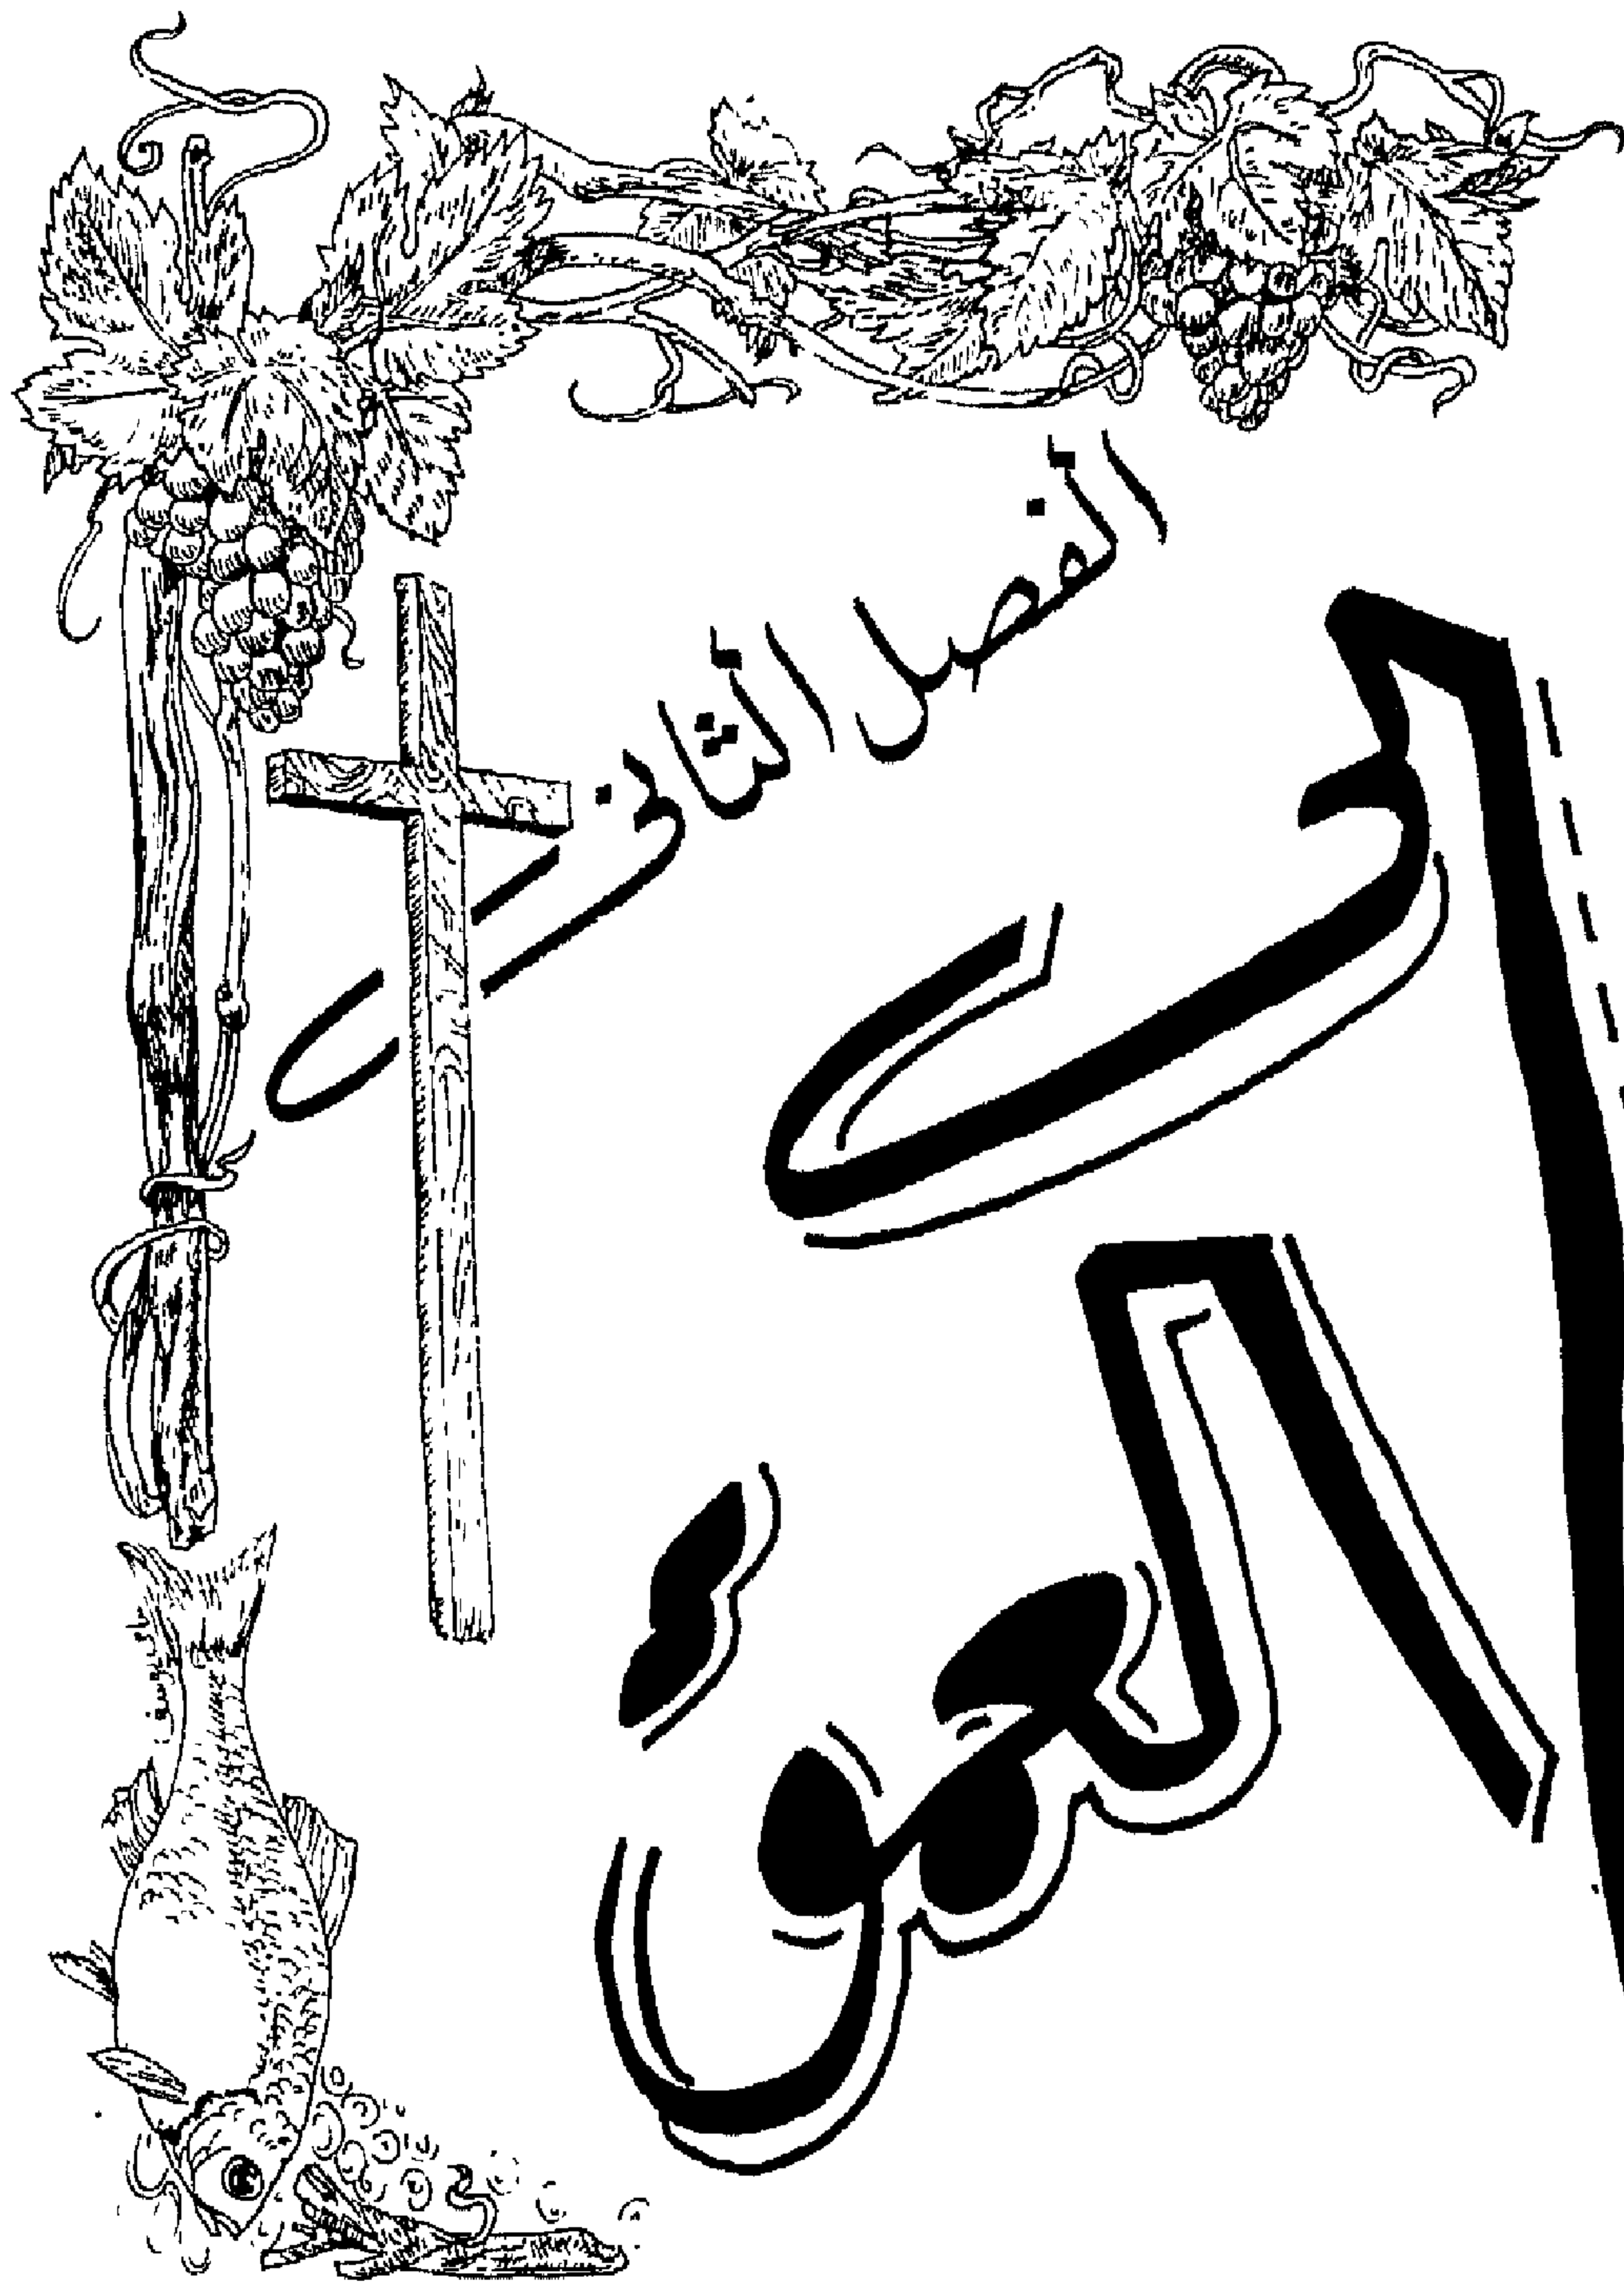 الفصل الثانى
الى
العمق